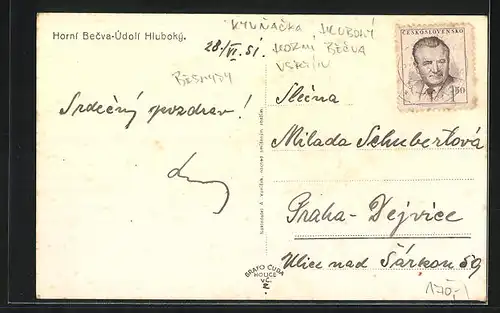 Horní Bečva-Údolí Hluboký.
KYVŇAČKA, HLUBOKÝ
HORNÍ BEČVA
VSETÍN
28./VI. 51.
BESKYDY
Srdečný pozdrav!
ČESKOSLOVENSKO
1.50
Slečna
Milada Schubertová
Praha-Dejvice
Ulice nad Šárkou 59
BRAFO CUBA
HOLICE
170,-